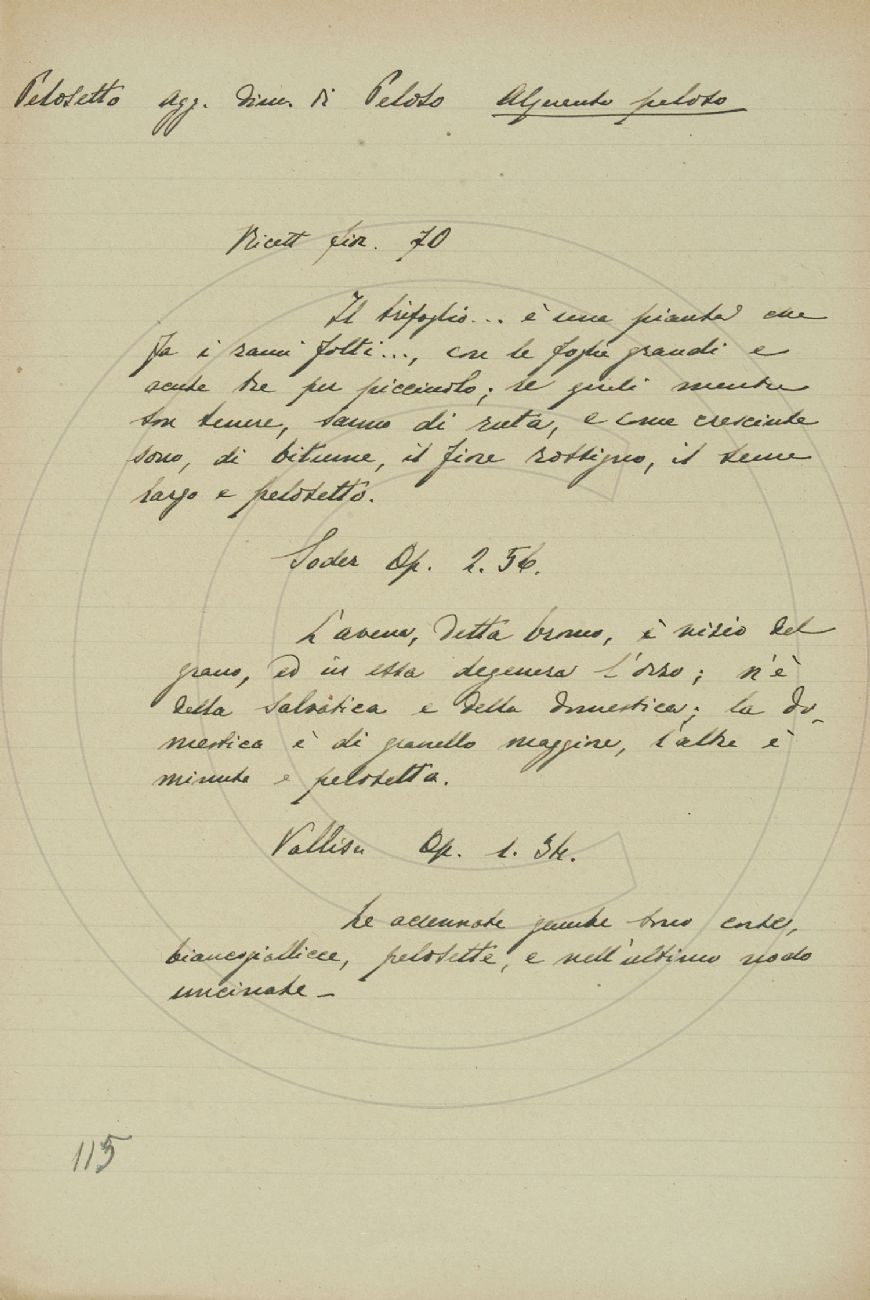 Pelosetto agg. dim. di Peloso Alquanto peloso
Ricett fior. 70
Il trifoglio... è una pianta che
fa i rami folti..., con le foglie grandi e
acute tre per picciuolo; le quali mentre
son tenere, sanno di ruta, e come cresciute
sono, di bitume, il fiore rossigno, il seme
largo e pelosetto.
Soder Op. 2. 56.
L'avena, detta bromo, è vizio del
grano, ed in essa degenera l'orzo; n'è
della salvatica e della domestica; la do-
mestica è di granello maggiore, l'altra è
minuta e pelosetta.
Vallisn Op. 1. 34.
Le accennate gambe sono corte,
biancogiallicce, pelosette, e nell'ultimo nodo
uncinate_
115